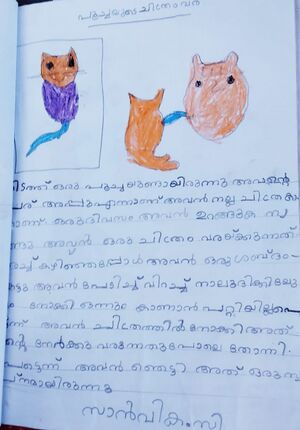 പൂച്ചയുടെ ചിത്രം വര
ിടത്ത് ഒരു പൂച്ചയുണ്ടായിരുന്നു അവന്റെ
പേര് അപ്പു എന്നാണ് അവൻ നല്ല ചിത്രകാ
ാണ് ഒരു ദിവസം അവൻ ഉറങ്ങുക
ന്നു അവൻ ഒരു ചിത്രം വരയ്ക്കുന്നത്
കഴിഞ്ഞപ്പോൾ അവൻ ഒരു ശബ്ദം
അവൻ പേടിച്ച് വിറച്ച് നാലു
നോക്കി ഒന്നും കാണാൻ പറ്റിയില്ല
ന്ന് അവൻ ചിത്രത്തിൽ നോക്കി അത്
ന്റെ നേർക്കു വരുന്നതുപോലെ തോന്നി.
പെട്ടെന്ന് അവൻ ഞെട്ടി അത് ഒരു സ
പ്നമായിരുന്നു
സാൻവിക.സി